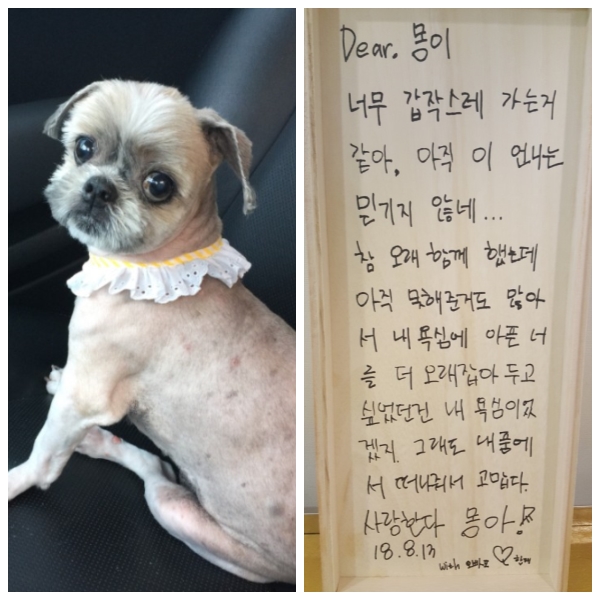 Dear. 몽이
너무 갑작스레 가는거
같아, 아직 이 언니는
믿기지 않네...
참 오래 함께 했는데
아직 못해준거도 많아
서 내 욕심에 아픈 너
를 더 오래잡아 두고
싶었던건 내 욕심이었
겠지. 그래도 내품에
서 떠나줘서 고맙다.
사랑한다 몽아!
18.8.13
with ♡ 함께